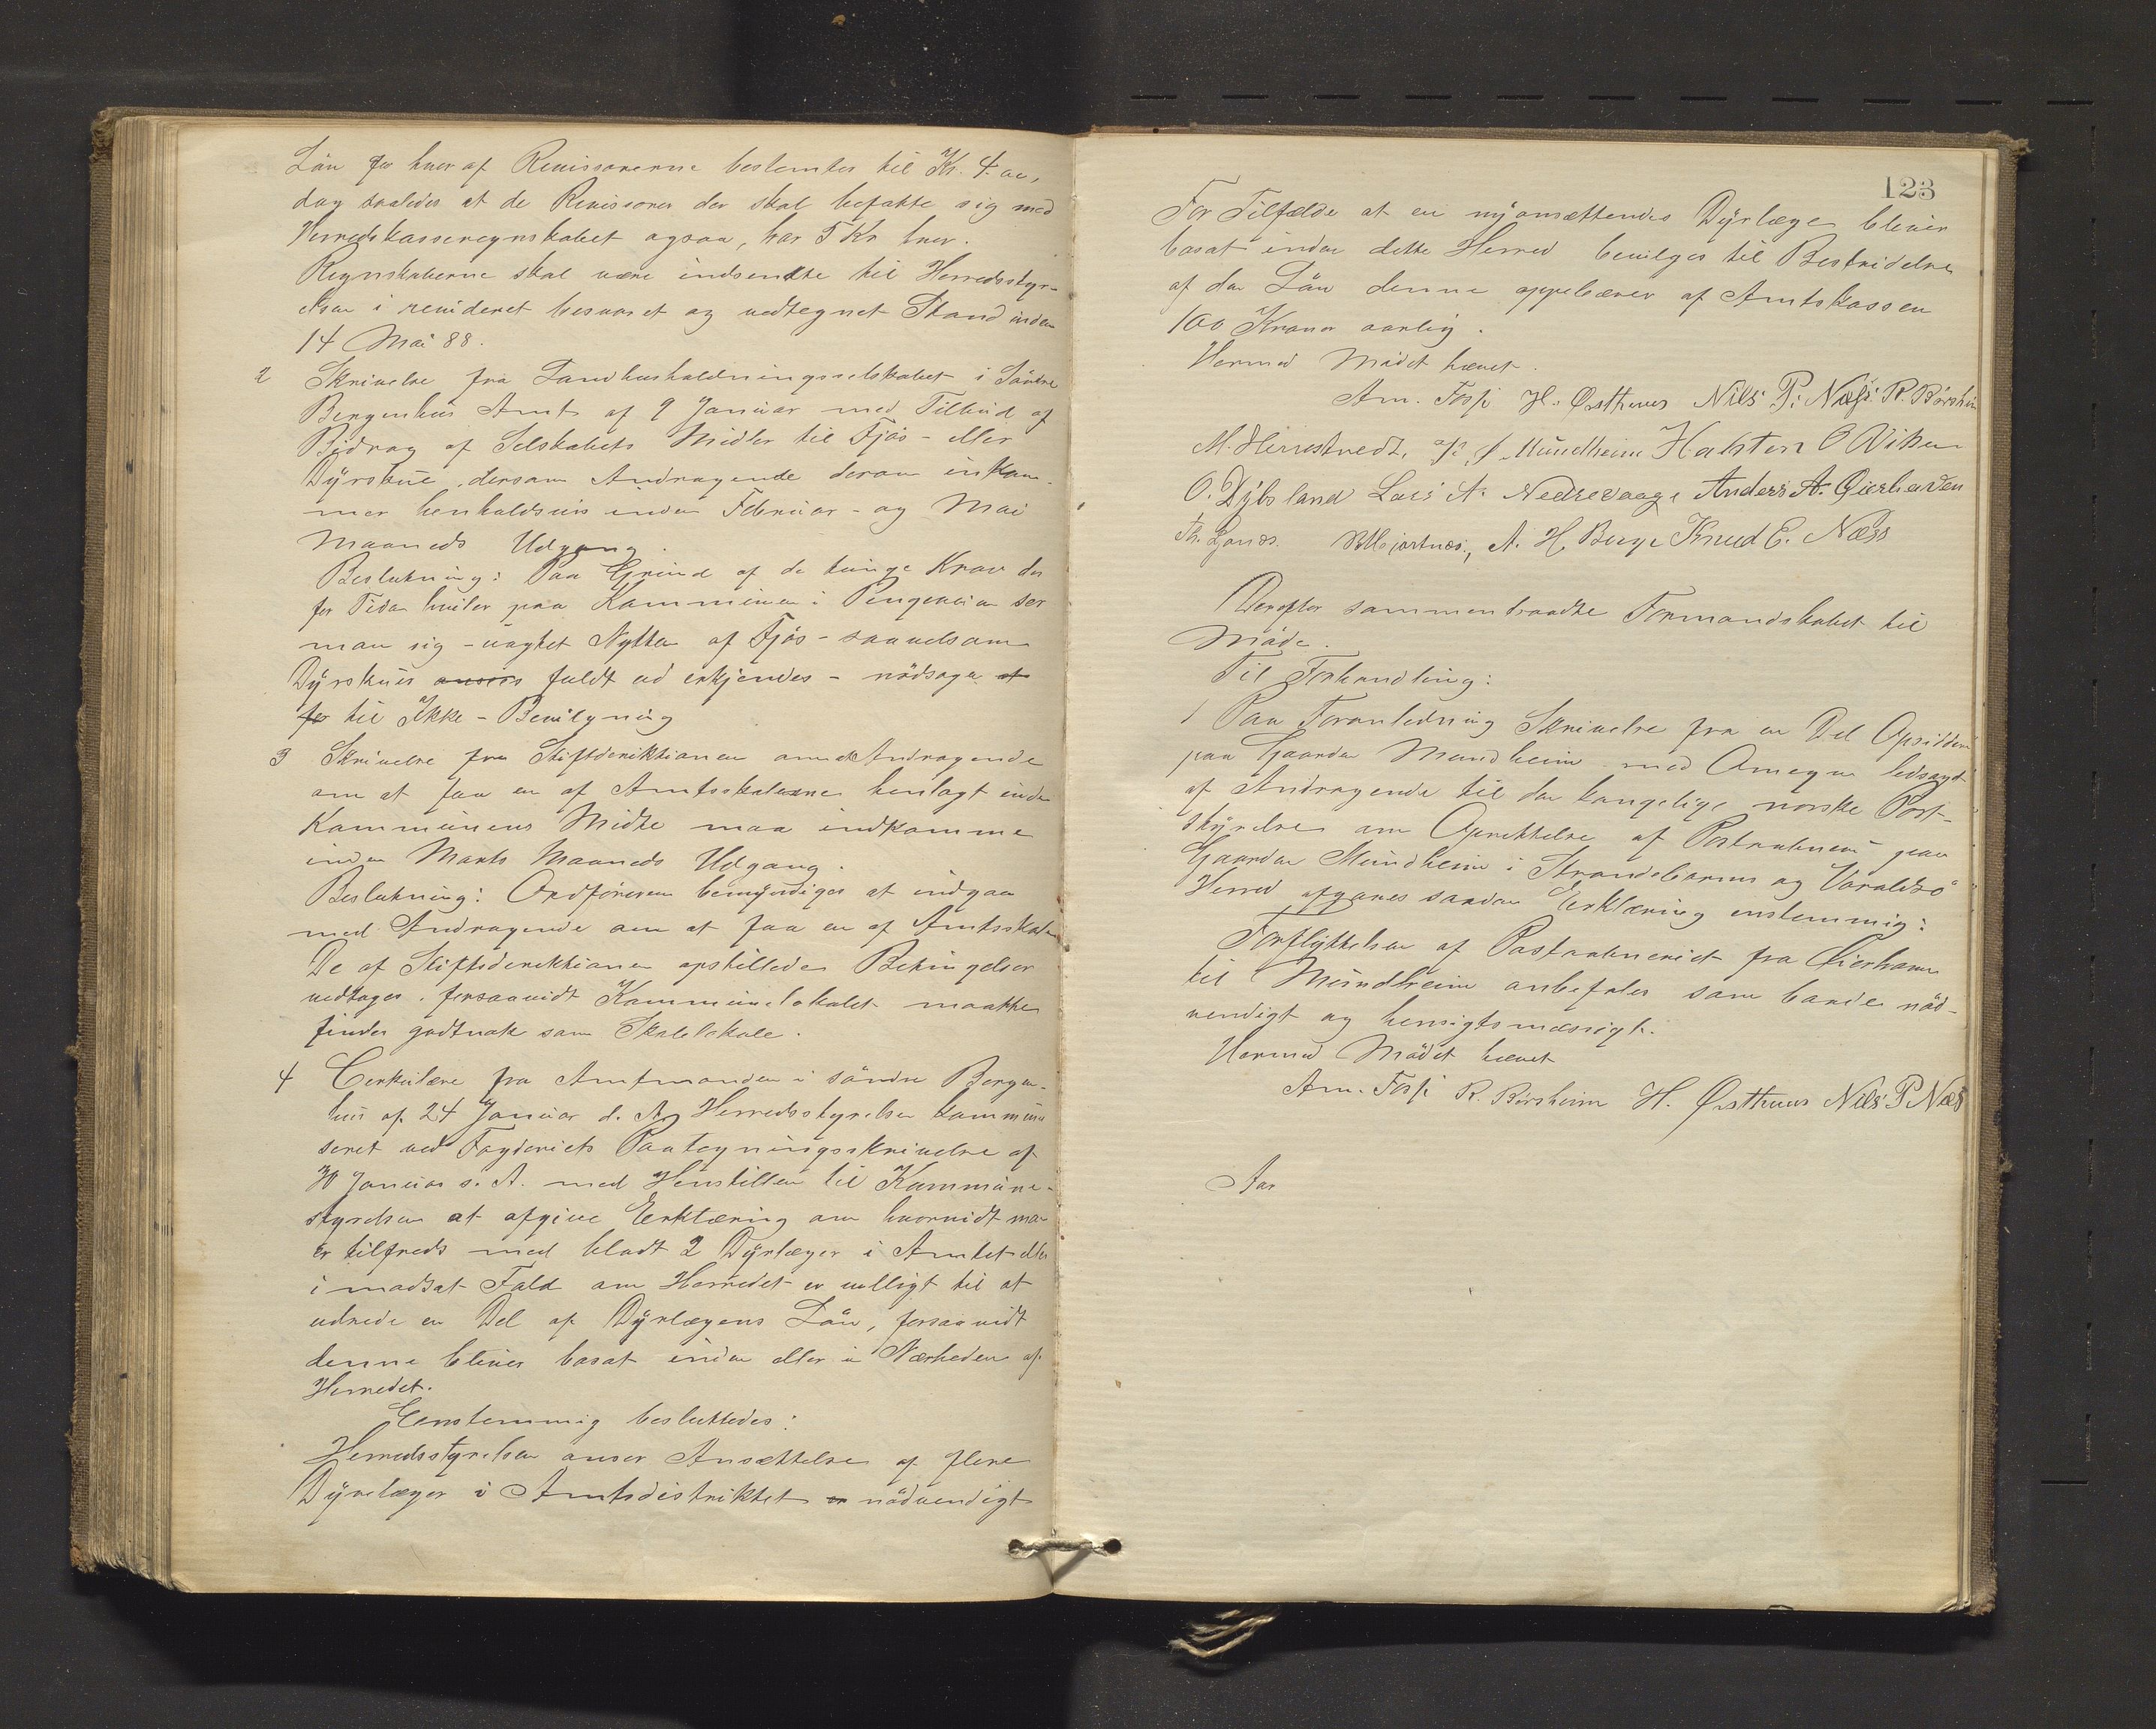 Løn for hver af Revisorerne bestemtes til Kr. 4.00,
dog saaledes at de Revisorer der skal befatte sig med
Herredskasseregnskabet ogsaa, har 5 Kr hver.
Regnskaberne skal være indsendte til Herredsstyr-
elsen i revideret besvaret og vedtegnet Stand inden
14 Mai 88.
2 Skrivelse fra Landhusholdningsselskabet i Søndre
Bergenhus Amt af 9 Januar med Tilbud af
Bidrag af Selskabets Midler til Fjøs- eller
Dyrskue, dersom Andragende derom indkom-
mer henholdsvis inden Februar- og Mai
Maaneds Udgang.
Beslutning: Paa Grund af de tunge Krav der
for Tiden hviler paa Kommunen i Pengeveien ser
man sig - uagtet Nytten af Fjøs- saavelsom
Dyrskuer ansees fuldt ud erkjendes - nødsaget at
for til Ikke-Bevilgning
3 Skrivelse fra Stiftsdirektionen om at Andragende
om at faa en af Amtsskolerne henlagt inden
Kommunens Midte maa indkomme
inden Marts Maaneds Udgang.
Beslutning: Ordføreren bemyndiges at indgaa
med Andragende om at faa en af Amtsskolerne
De af Stiftsdirektionen opstillede Betingelser
vedtages, forsaavidt Kommunelokalet maatte
findes godtnok som Skolelokale.
4 Cirkulære fra Amtmanden i søndre Bergen-
hus af 24 Januar d. A. Herredsstyrelsen kommuni
seret ved Fogderiets Paategningsskrivelse af
30 Januar s. A. med Henstillen til Kommune-
styrelsen at afgive Erklæring om hvorvidt man
er tilfreds med blodt 2 Dyrlæger i Amtet eller
i modsat Fald om Herredet er villigt til at
udrede en Del af Dyrlægens Løn, forsaavidt
denne bliver bosat inden eller i Nærheden af
Herredet.
Eenstemmig besluttedes:
Herredsstyrelsen anser Ansættelse af flere
Dyrelæger i Amtsdistriktet er nødvendigt
123
For Tilfælde at en nyansættendes Dyrlæge bliver
bosat inden dette Herred bevilges til Bestridelse
af den Løn denne oppebærer af Amtskassen
100 Kroner aarlig.
Hermed Mødet hævet.
Am. Fosse H. Østhuus Nils P. Næss R. Børsheim
M. Herrestvedt, Mundheim Halsten O Viken
O. Dybsland Lars A. Nedrevaage Anders A. Øierhavn
A. H. Berge Knud E. Næss
Derefter sammentraadte Formandskabet til
Møde.
Til Forhandling:
1 Paa Foranledning Skrivelse fra en Del Opsiddere
paa Gaarden Mundheim med Omegn ledsaget
af Andragende til den kongelige norske Post-
styrelse om Oprettelse af Postaabneri paa
Gaarden Mundheim i Strandebarms og Varaldsø
Herred afgaves saadan Erklæring enstemmig:
Forflyttelsen af Postaabneriet fra Øierhavn
til Mundheim anbefales som baade nød-
vendigt og hensigtsmæssigt.
Hermed Mødet hævet
Am. Fosse R. Børsheim H. Østhuus Nils P Næss
Aar